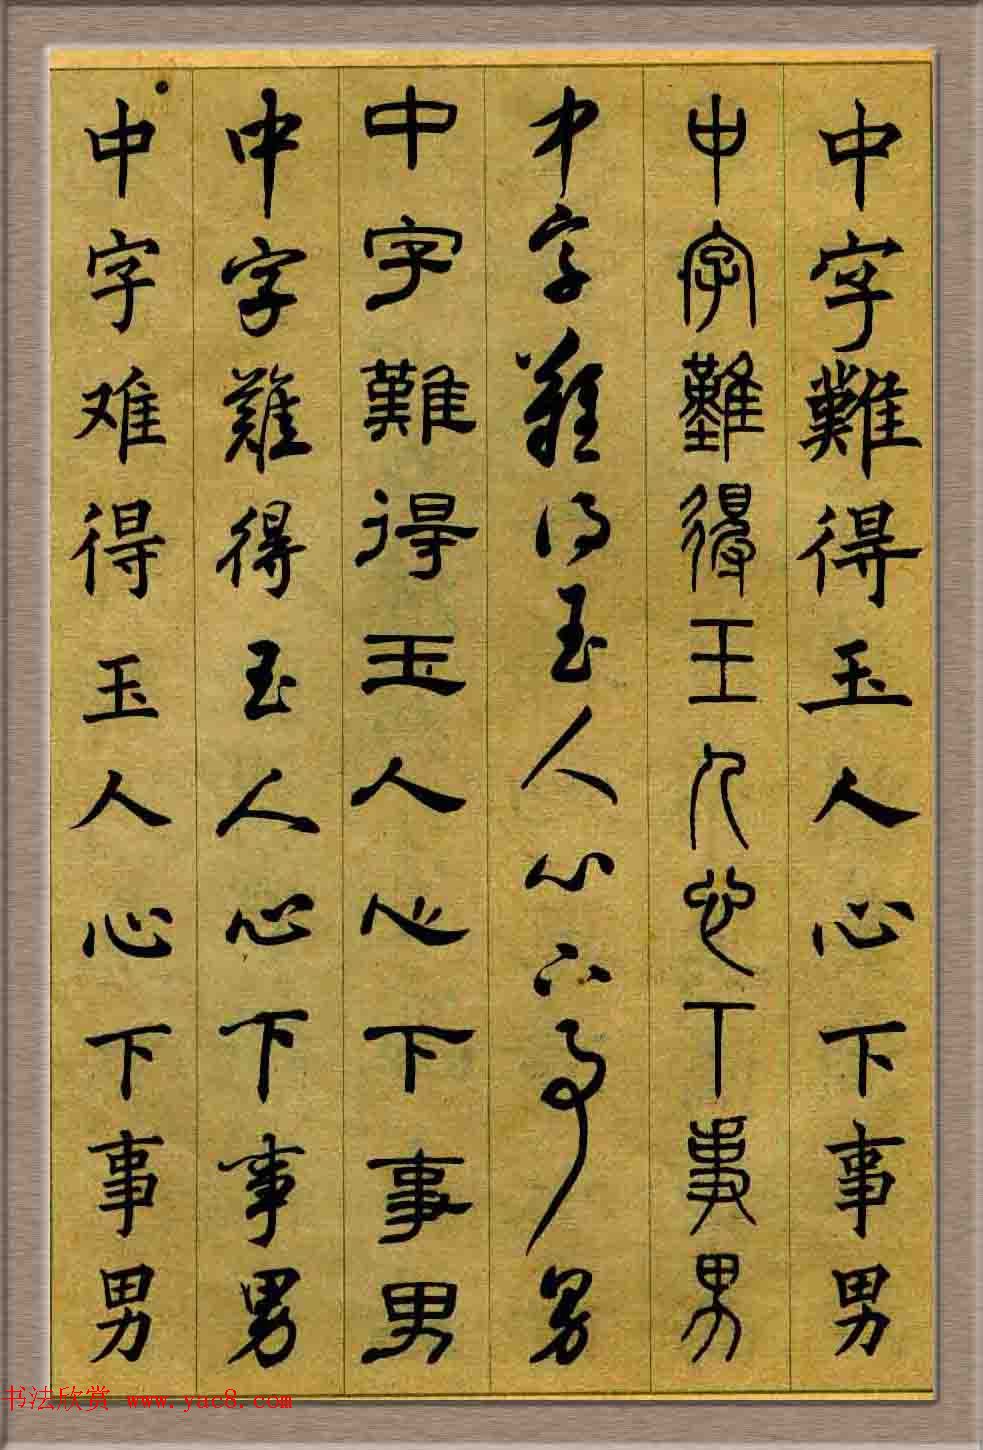 中字難得玉人心下事男
中字難得玉人心下事男
中字難得玉人心下事男
中字難得玉人心下事男
中字難得玉人心下事男
中字难得玉人心下事男
书法欣赏 www.yac8.com